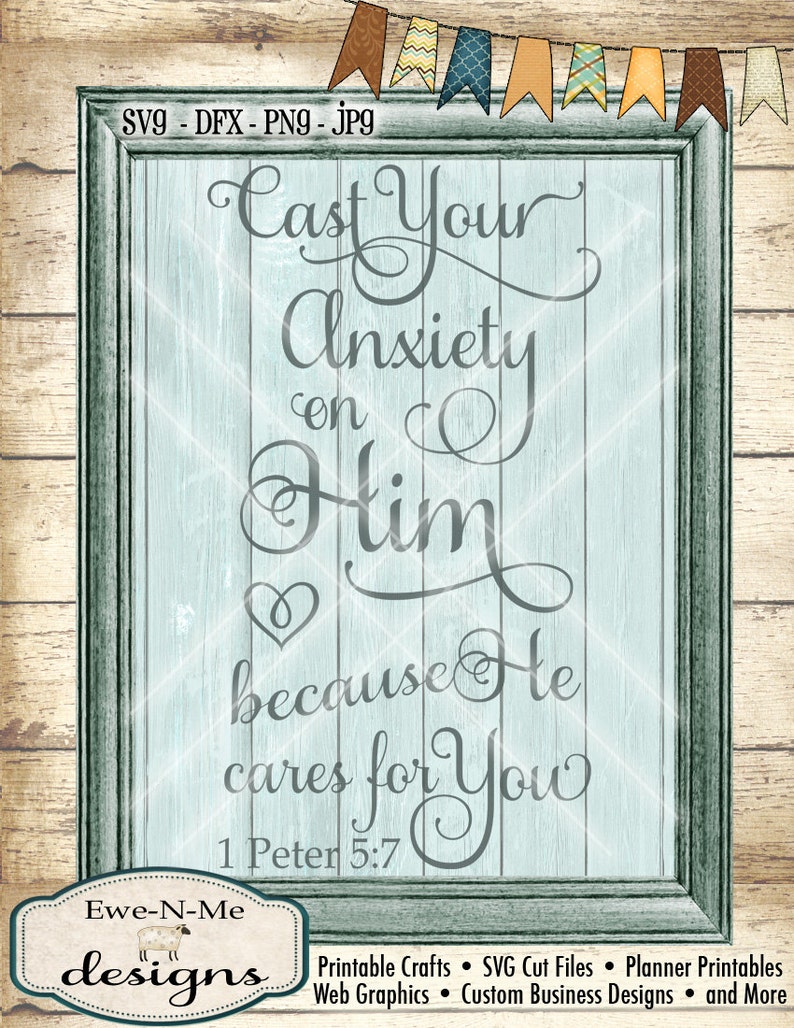 SVG - DFX - PNG - JPG
Cast Your
Anxiety
on
Him
because He
cares for You
1 Peter 5:7
Ewe-N-Me
designs
Printable Crafts • SVG Cut Files • Planner Printables
Web Graphics • Custom Business Designs • and More